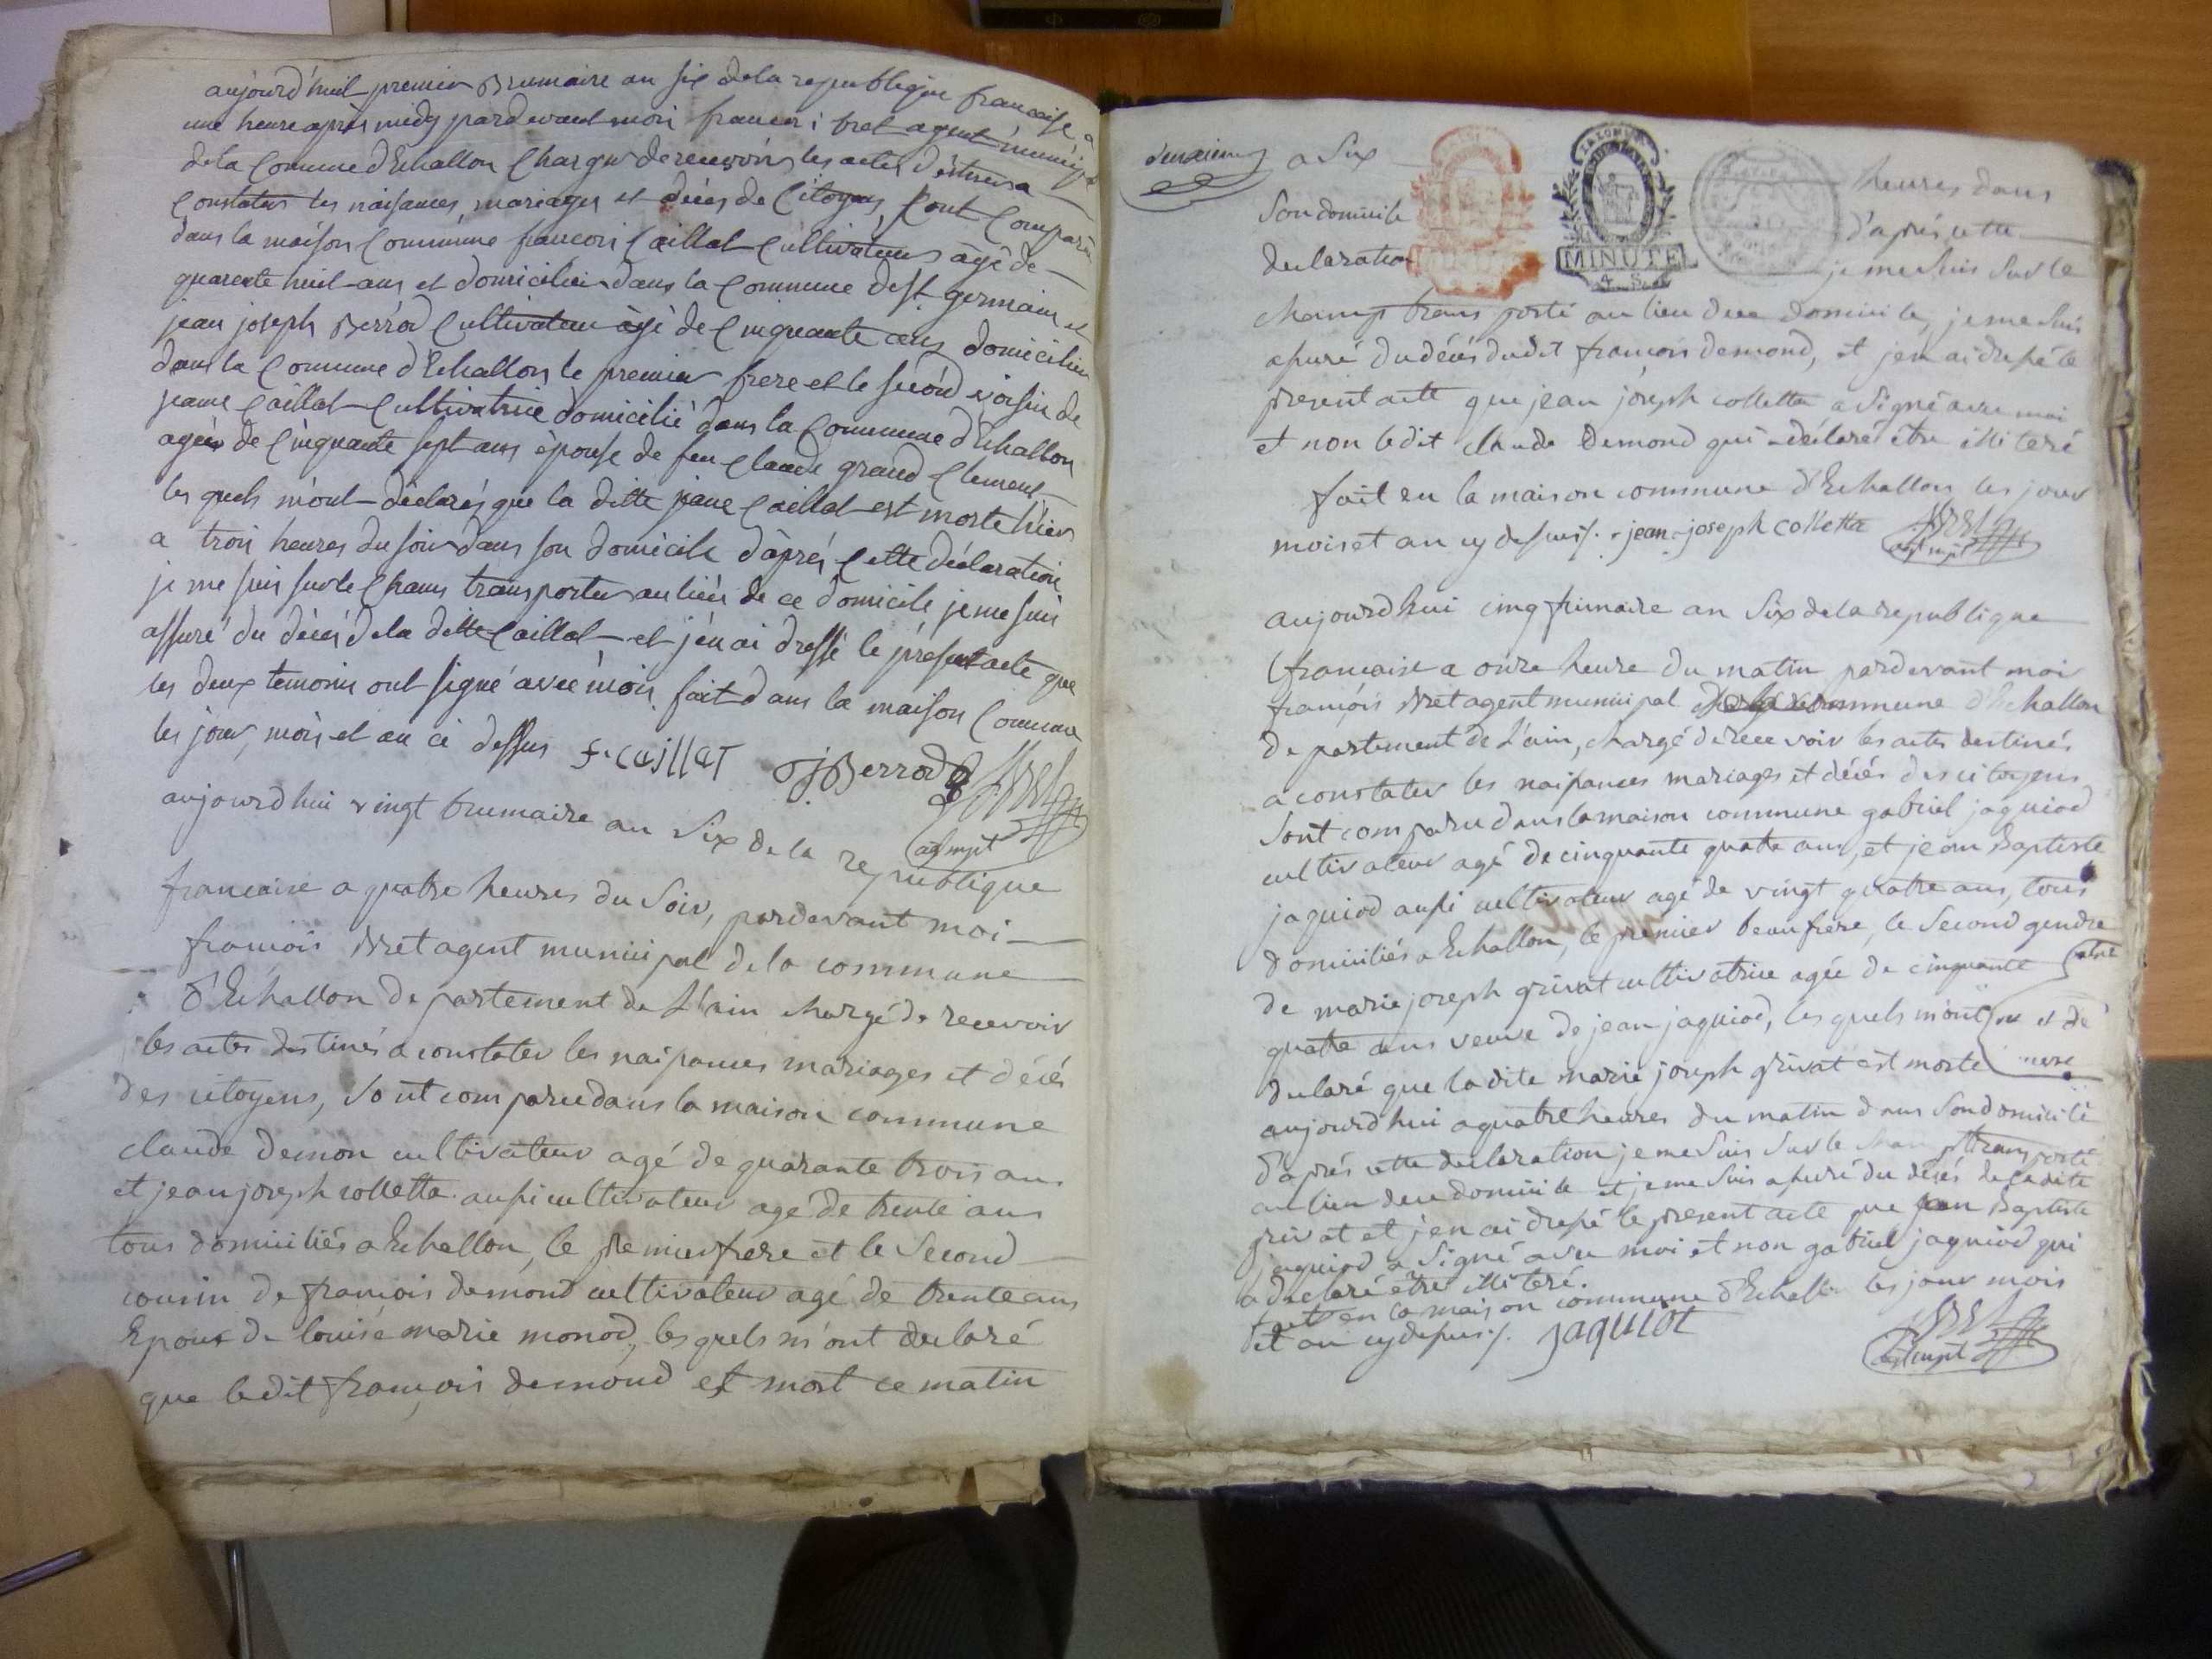 aujourd'huit premier Brumaire an six dela republique francaise a
une heure après midy pardevant moi francoi bret agent municipal
dela Comune d'Echallon Charger de recevoir les actes déstines a
Constater les naisances, mariages et décés de Citoyens, Sont Comparu
dans la maison Commune francoi Caillat Cultivateur àgé de
quarente huit ans et domicilier dans la Commune de St germain et
jean joseph Berrod Cultivateur àgé de Cinquante ans domicilier
dans la Commune d'Echallon le premier frere et le sécond voisin de
jeanne Caillat Cultivatrice domicilié dans la Commune d'Echallon
agée de Cinquante sept ans épouse de feu Claude grand Clement
les quels m'ont déclarés que la ditte jeane Caillat est morte hier
a trois heures du soir dans son domicile d'àprés Cette déclaration
je me suis surle Chams transporter au lieu de ce domicile je me suis
assuré du décés dela ditte Caillat et j'en ai dressé le présent acte que
les deux temoins ont signé avec moi, fait dans la maison Commune
les jour, mois et an ci dessus f. caillat J j Berrod Bret
ag mpl
aujourdhui vingt brumaire an Six de la republique
francaise a quatre heures du Soir, pardevant moi
francois Bret agent municipal dela commune
d'Echallon departement de L'ain chargé de recevoir
les actes destinés a constater les naissances mariages et décés
des citoyens, Sont comparu dans la maison commune
claude demon cultivateur agé de quarante trois ans
et jean joseph collette aussi cultivateur agé de trente ans
tous domiciliés a Echallon, le premier frere et le Second
cousin de francois demond cultivateur agé de trente ans
Epoux de louise marie monod, les quels m'ont declaré
que ledit francois demond est mort ce matin
deuxieme
a Six heures dans
Son domicile d'aprés cette
declaration je me Suis Surle
champs trans porté au lieu dece domicile, je me Suis
assuré du décés dudit francois demond, et jen ai dressé le
present acte que jean joseph collette a Signé avec moi
et non ledit claude Demond qui a déclaré être illiteré
fait en la maison commune d'Echallon les jour
mois et an cy dessus /. jean-joseph collette Bret
agt mpl
MINUTE
aujourdhui cinq frimaire an Six dela republique
francaise a onze heure du matin pardevant moi
francois Bret agent municipal de la commune d'Echallon
departement de L'ain, chargé de recevoir les actes destinés
a constater les naissances mariages et décés des citoyens
Sont comparu dans la maison commune gabriel jaquiod
cultivateur agé de cinquante quatre ans, et jean Baptiste
jaquiod aussi cultivateur agé de vingt quatre ans, tous
domiciliés a Echallon, le premier beaufrere, le Second gendre
de marie joseph grivat cultivatrice agée de cinquante
quatre ans veuve de jean jaquiod, les quels m'ont
declaré que ladite marie joseph grivat est morte
aujourdhui a quatre heures du matin dans Son domicile
d'aprés cette declaration je me Suis Surle champ transporté
au lieu dece domicile et je me Suis assuré du décés de ladite
grivat et j'en ai dressé le present acte que jean Baptiste
jaquiod a Signé avec moi et non gabriel jaquiod qui
a declaré être illiteré.
fait en la maison commune d'Echallon les jour mois
et an cy dessus /. jaquiot Bret
agt mpl